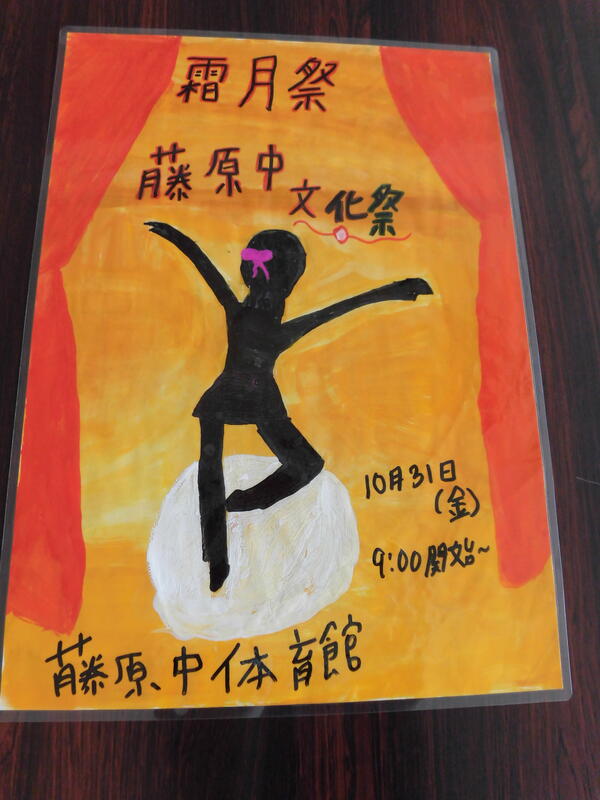 霜月祭
藤原中
文化祭
10月31日
(金)
9:00開始~
藤原中体育館